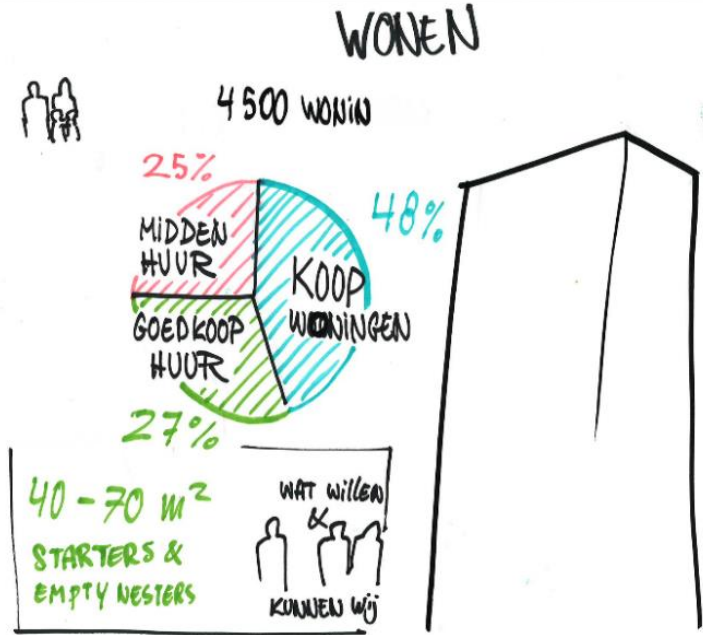 WONEN
4500 WONIN
25%
48%
MIDDEN
HUUR
KOOP
WONINGEN
GOEDKOOP
HUUR
27%
40-70 m²
STARTERS &
EMPTY NESTERS
WAT WILLEN
&
KUNNEN WIJ